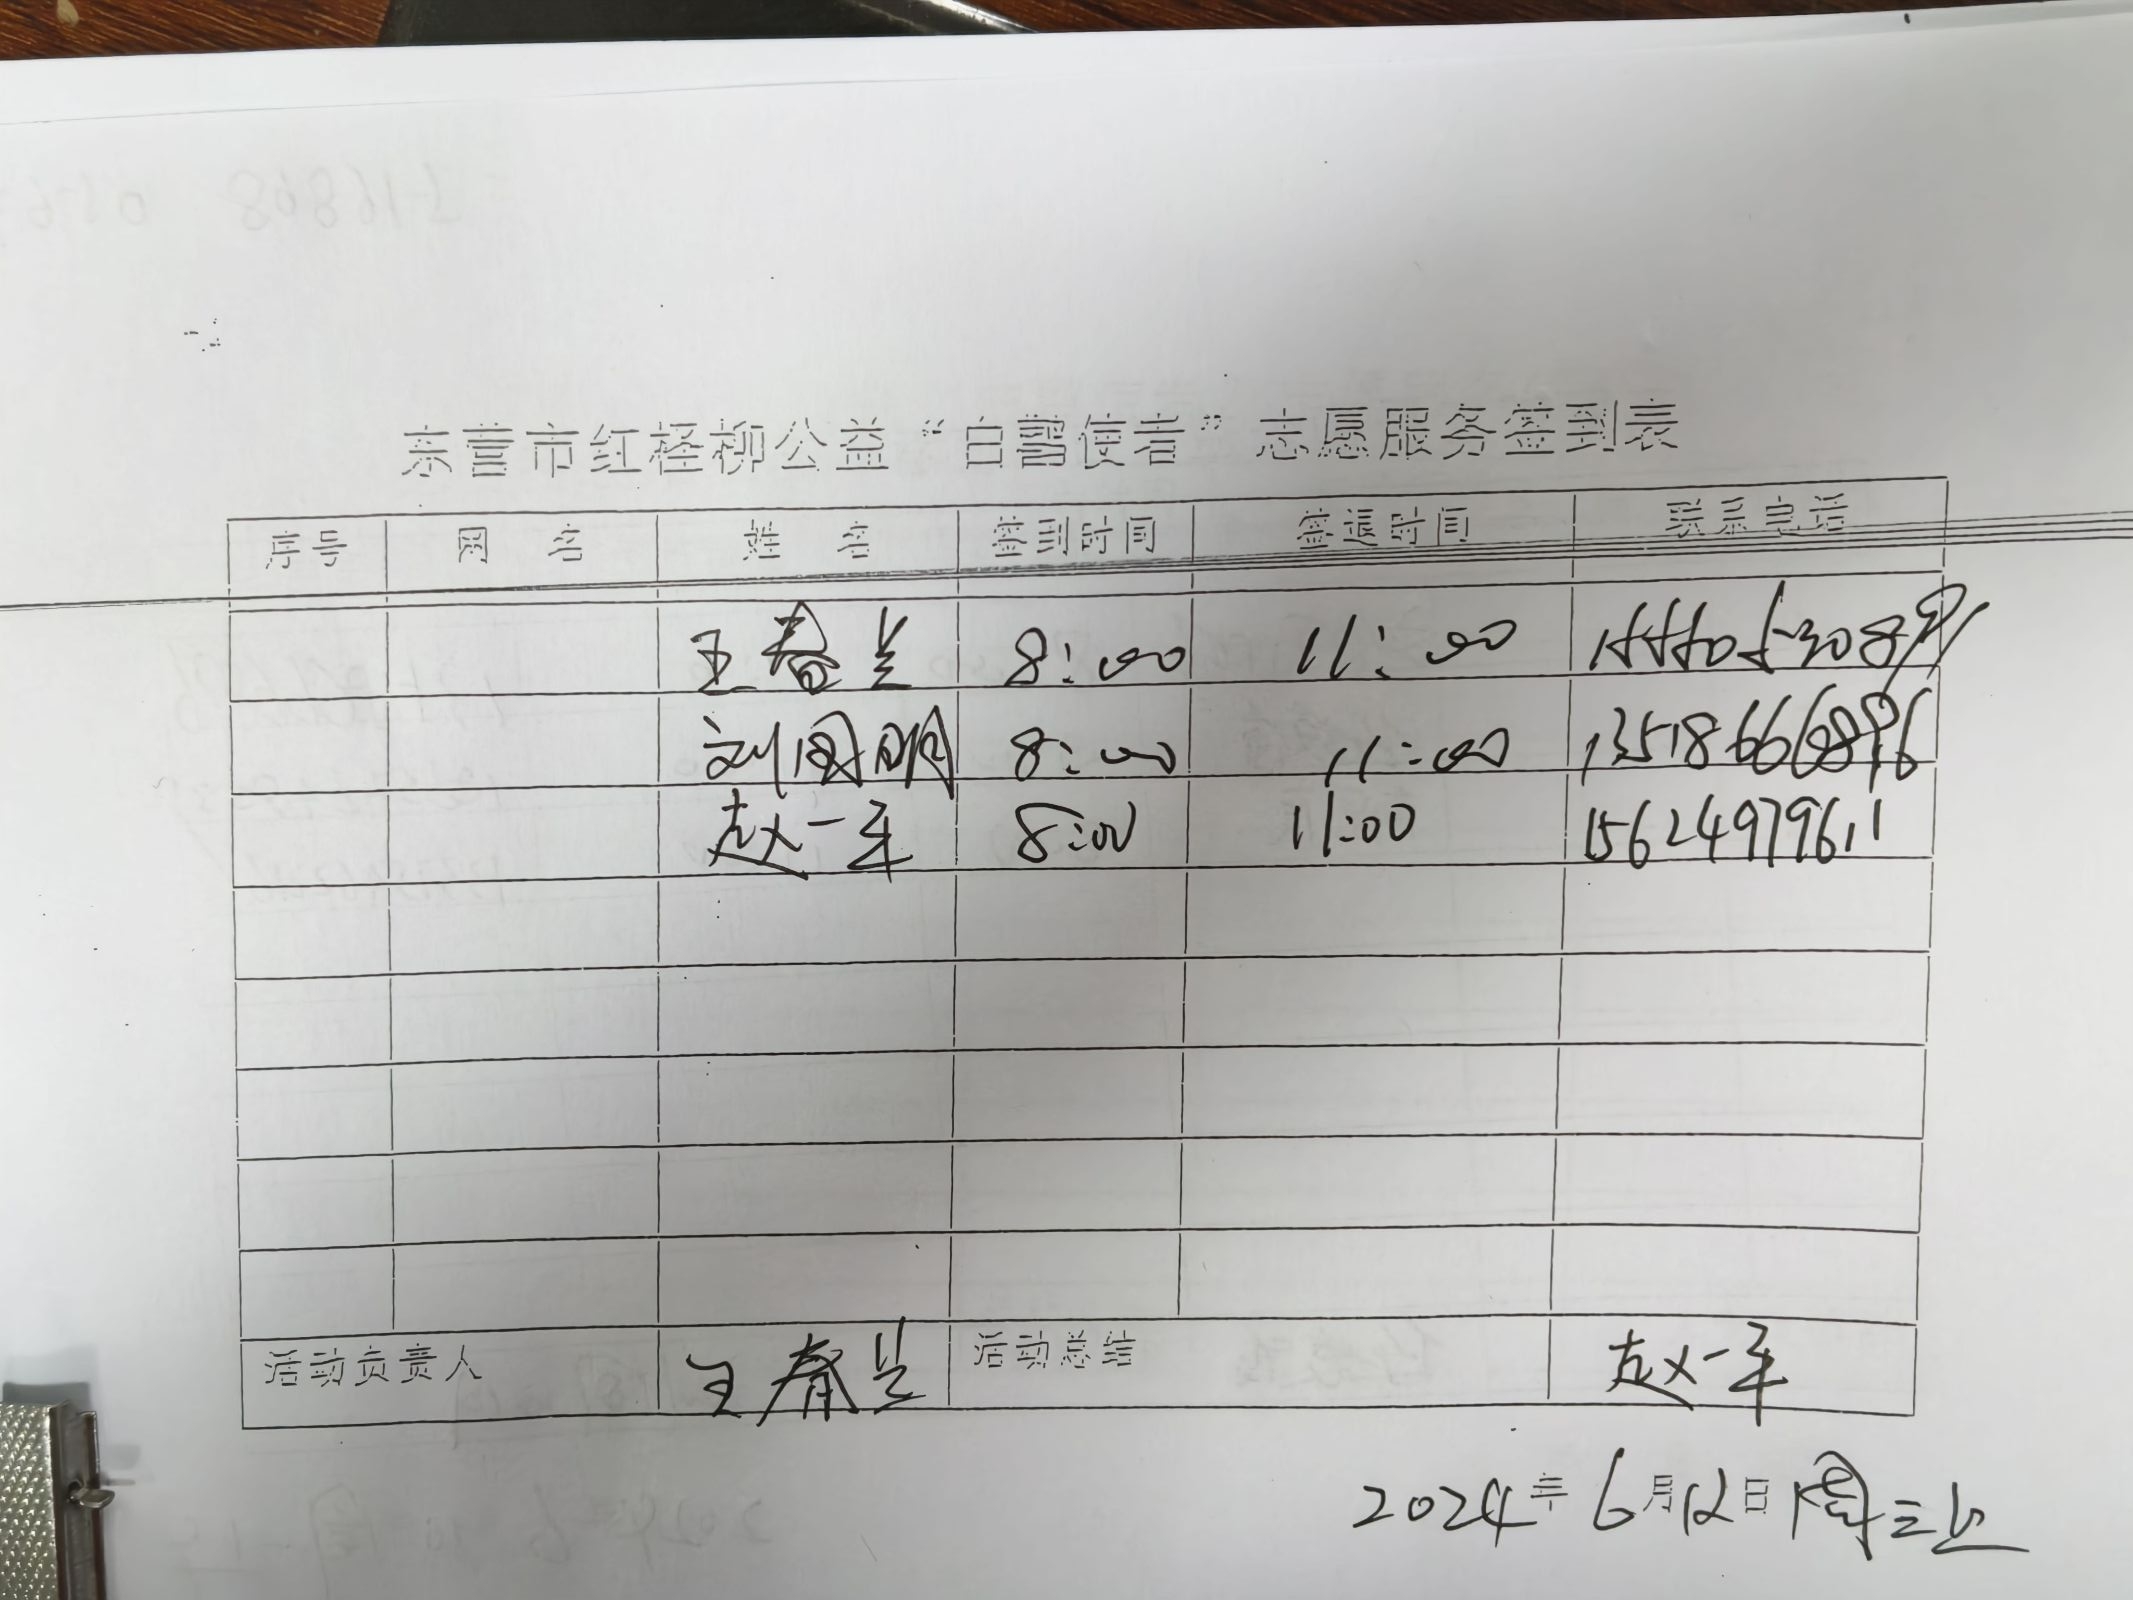 东营市红柽柳公益“白鹭使者”志愿服务签到表
序号 网名 姓名 签到时间 签退时间 联系电话
王春兰 8:00 11:00
刘国明 8:00 11:00 13518666896
赵一平 8:00 11:00 15624979611
活动负责人 王春兰 活动总结 赵一平
2024年6月12日 周三上